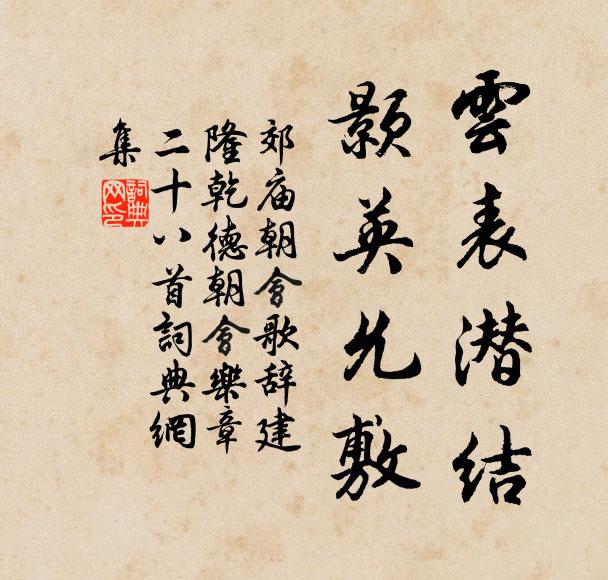 雲表潜结
颢英允敷
郊庙朝會歌辞建
隆乾德朝會樂章
二十八首詞典網
集
詞典
网印